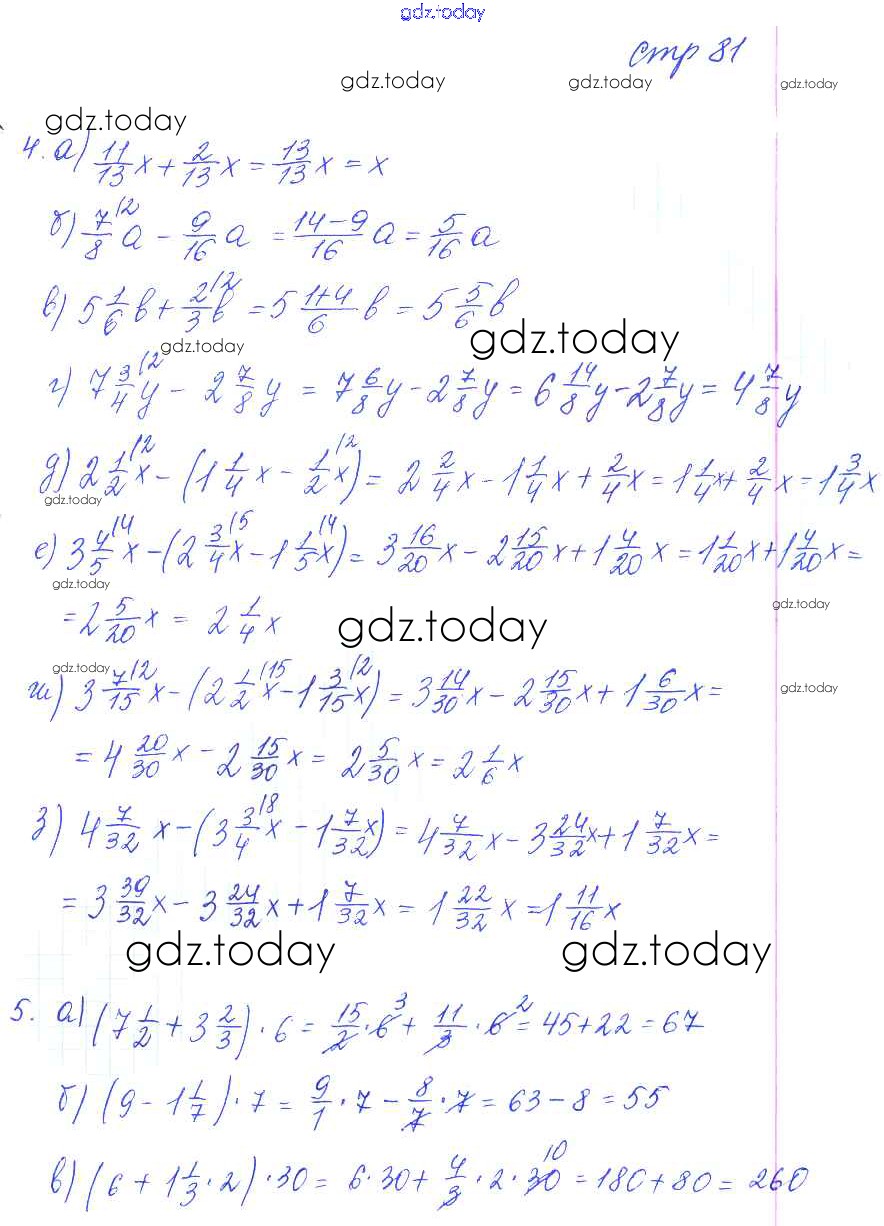 gdz.today
стр 81
gdz.today gdz.today gdz.today
gdz.today
4. а) 11/13 x + 2/13 x = 13/13 x = x
б) 7/8 |2 a - 9/16 a = (14-9)/16 a = 5/16 a
в) 5 1/6 в + 2/3 |2 в = 5 (1+4)/6 в = 5 5/6 в
gdz.today
gdz.today
г) 7 3/4 |2 y - 2 7/8 y = 7 6/8 y - 2 7/8 y = 6 14/8 y - 2 7/8 y = 4 7/8 y
д) 2 1/2 |2 x - (1 1/4 x - 1/2 |2 x) = 2 2/4 x - 1 1/4 x + 2/4 x = 1 1/4 x + 2/4 x = 1 3/4 x
gdz.today
е) 3 4/5 |4 x - (2 3/4 |5 x - 1 1/5 |4 x) = 3 16/20 x - 2 15/20 x + 1 4/20 x = 1 1/20 x + 1 4/20 x =
gdz.today
gdz.today
= 2 5/20 x = 2 1/4 x
gdz.today
gdz.today gdz.today
ж) 3 7/15 |2 x - (2 1/2 |15 x - 1 3/15 |2 x) = 3 14/30 x - 2 15/30 x + 1 6/30 x =
= 4 20/30 x - 2 15/30 x = 2 5/30 x = 2 1/6 x
з) 4 7/32 x - (3 3/4 |8 x - 1 7/32 x) = 4 7/32 x - 3 24/32 x + 1 7/32 x =
= 3 39/32 x - 3 24/32 x + 1 7/32 x = 1 22/32 x = 1 11/16 x
gdz.today gdz.today
5. а) (7 1/2 + 3 2/3) · 6 = 15/2 · 6 3 + 11/3 · 6 2 = 45 + 22 = 67
б) (9 - 1 1/7) · 7 = 9/1 · 7 - 8/7 · 7 = 63 - 8 = 55
в) (6 + 1 1/3 · 2) · 30 = 6 · 30 + 4/3 · 2 · 30 10 = 180 + 80 = 260